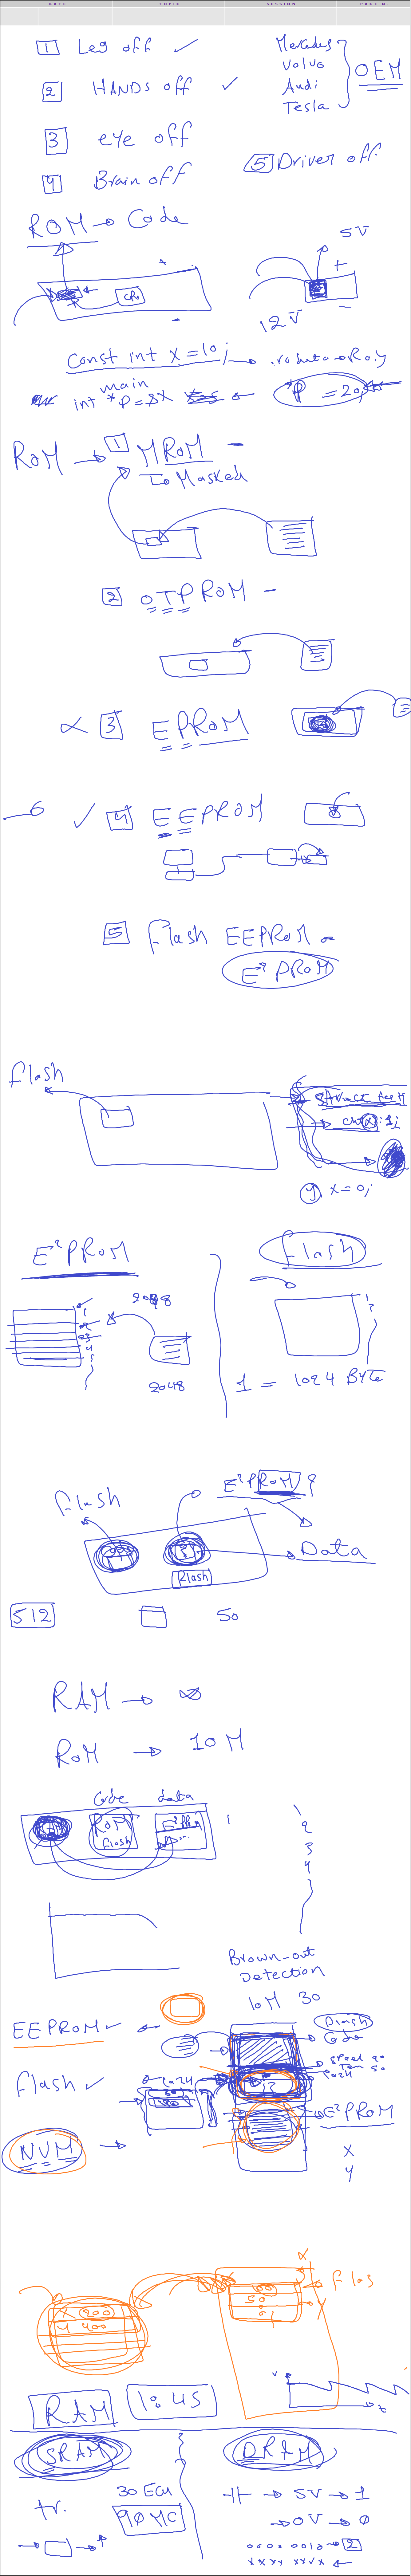 DATE TOPIC SESSION PAGE N.
1 Leg off ✓
2 HANDS off ✓
3 eye off
4 Brain off
Mercedes
Volvo
Audi
Tesla
OEM
5 Driver off
ROM → Code
CPU
5V
+
-
12V
const int x = 10; → .rodata → Ro
main
int *P = &x
*P = 20;
ROM → 1 MROM -
→ Masked
2 OTPROM -
3 EPROM
✓ 4 EEPROM
5 flash EEPROM
E²PROM
flash
struct
x = 0;
E²PROM
flash
1
2
3
4
5
2048
2048
1 = 1024 BYTE
flash
E²PROM ?
Data
flash
512
50
RAM → ∞
ROM → 10 M
Code data
ROM
flash
E²PROM
1
2
3
4
Brown-out
Detection
10M 30
EEPROM ✓
flash ✓
NVM →
Code
E²PROM
X
Y
X 200
Y 400
100
50
flas
X
Y
V
t
RAM
10:45
SRAM
DRAM
tr.
30 ECU
90 MC
→ 5V → 1
→ 0V → 0
0000 0010 → 2